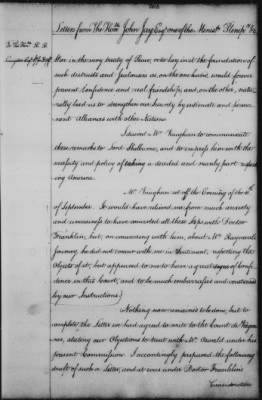 Letters from The Honble John Jay Esqr one of the Minist. Plenipo. &c
To the Honble R. R.
Livingston Esqr
Nor in the very treaty of Peace, to lay in it the foundation of
such distrusts and jealousies as, on the one hand, would forever
prevent confidence and real friendship, and on the other, natu-
rally lead us to strengthen our security by intimate and perma-
nent alliances with other Nations
I desired Mr Vaughan to communicate
these remarks to Lord Shelburne, and to impress him with the
necessity and policy of taking a decided and manly part respect-
ing America.
Mr Vaughan set off the Evening of the 11th
of September. It would have relieved me from much anxiety
and uneasiness to have concerted all these steps with Doctor
Franklin, but, on conversing with him, about Mr Rayneval's
Journey, he did not concur with me in sentiment, respecting the
Object of it; but appeared to me to have a great degree of Confi-
dence in this Court, and to be much embarrassed and constrained
by our Instructions.)
Nothing now remained to be done, but to
complete the Letter we had agreed to write to the Count de Vergen-
nes, stating our Objections to treat with Mr Oswald under his
present Commission. I accordingly prepared the following
draft of such a Letter, and it was under Doctor Franklin's
Consideration